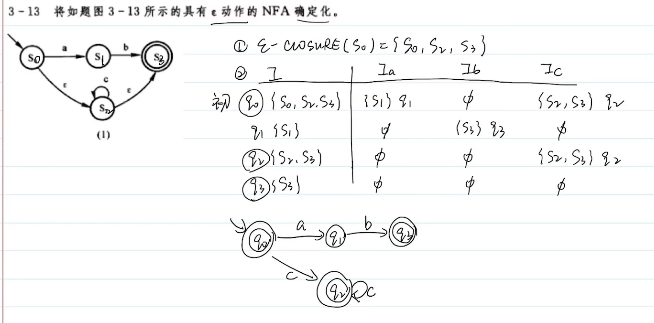 3-13 将如题图3-13所示的具有ε动作的NFA确定化。
S0 a S1 b S3
ε c ε
S2
(1)
① ε-CLOSURE(S0)={S0,S2,S3}
② I Ia Ib Ic
初 q0 {S0,S2,S3} {S1} q1 φ {S2,S3} q2
q1 {S1} φ {S3} q3 φ
q2 {S2,S3} φ φ {S2,S3} q2
q3 {S3} φ φ φ
q0 a q1 b q3
c q2 c